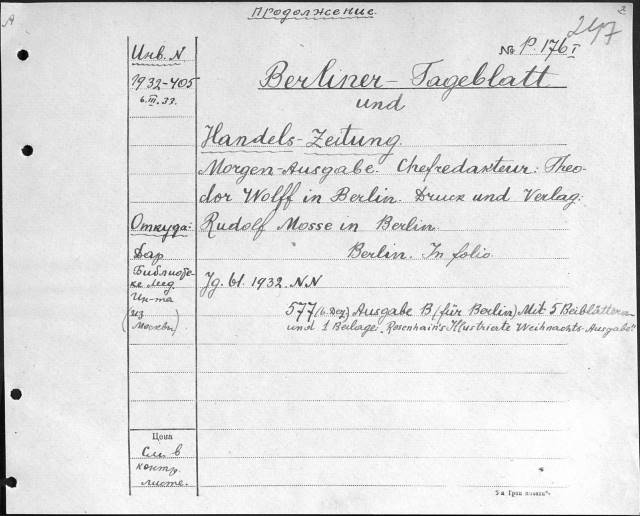 Продолжение.
А
2
247
Инв. N
1932-405
6.III.33.
№ Р. 176 I
Berliner-Tageblatt
und
Handels-Zeitung.
Morgen-Ausgabe. Chefredakteur: Theo-
dor Wolff in Berlin. Druck und Verlag:
Rudolf Mosse in Berlin.
Berlin. In folio.
Откуда:
Дар
Библиоте-
ке Мед.
Ин-та
(из
Москвы)
Jg. 61. 1932. NN
577 (6. Dez.) Ausgabe B (für Berlin) Mit 5 Beiblättern
und 1 Beilage: „Rosenhain's Illustrierte Weihnachts-Ausgabe"
Цена
См. в
контр.
листе.